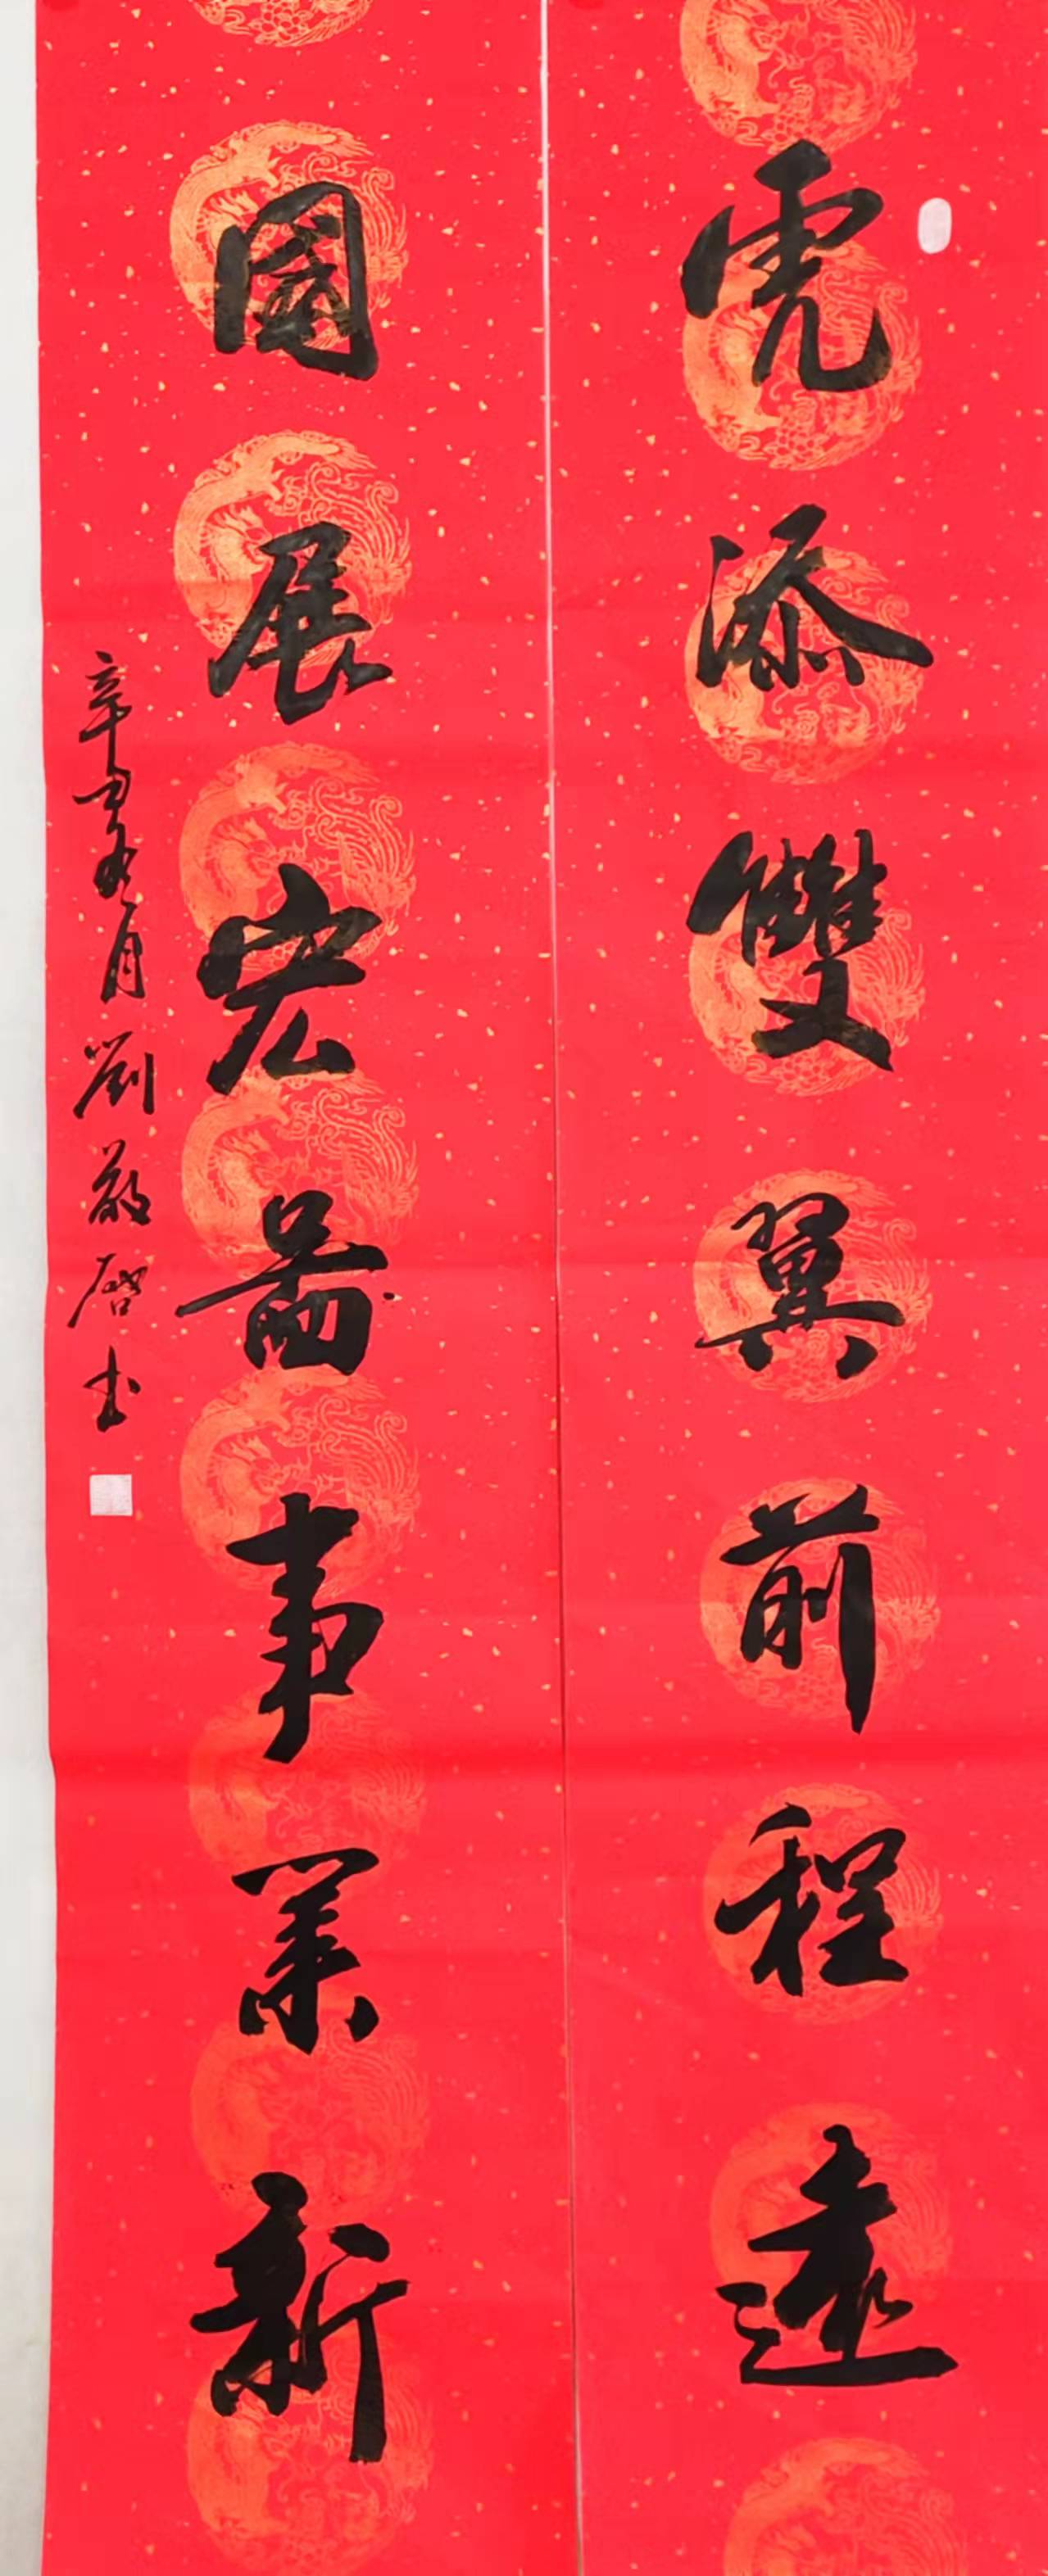 虎添雙翼前程遠
國展宏啚事業新
辛丑冬月劉敬啓书